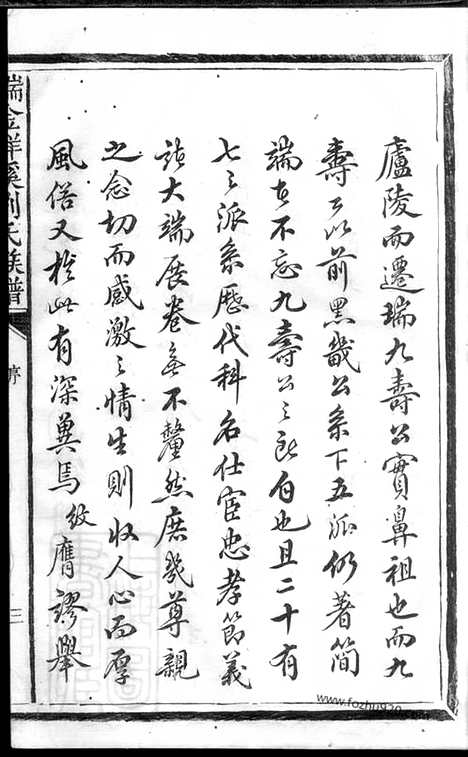 廬陵而遷瑞九壽公實鼻祖也而九
壽公以前黑畿公系下五派仍著簡
端者不忘九壽公之所自也且二十有
七之派系歷代科名仕宦忠孝節義
諸大端展卷無不釐然庶幾尊親
之念切而感激之情生則收人心而厚
風俗又於此有深冀焉紋膺謬舉
瑞金祥溪劉氏族譜
序
三
www.fozhu920.com